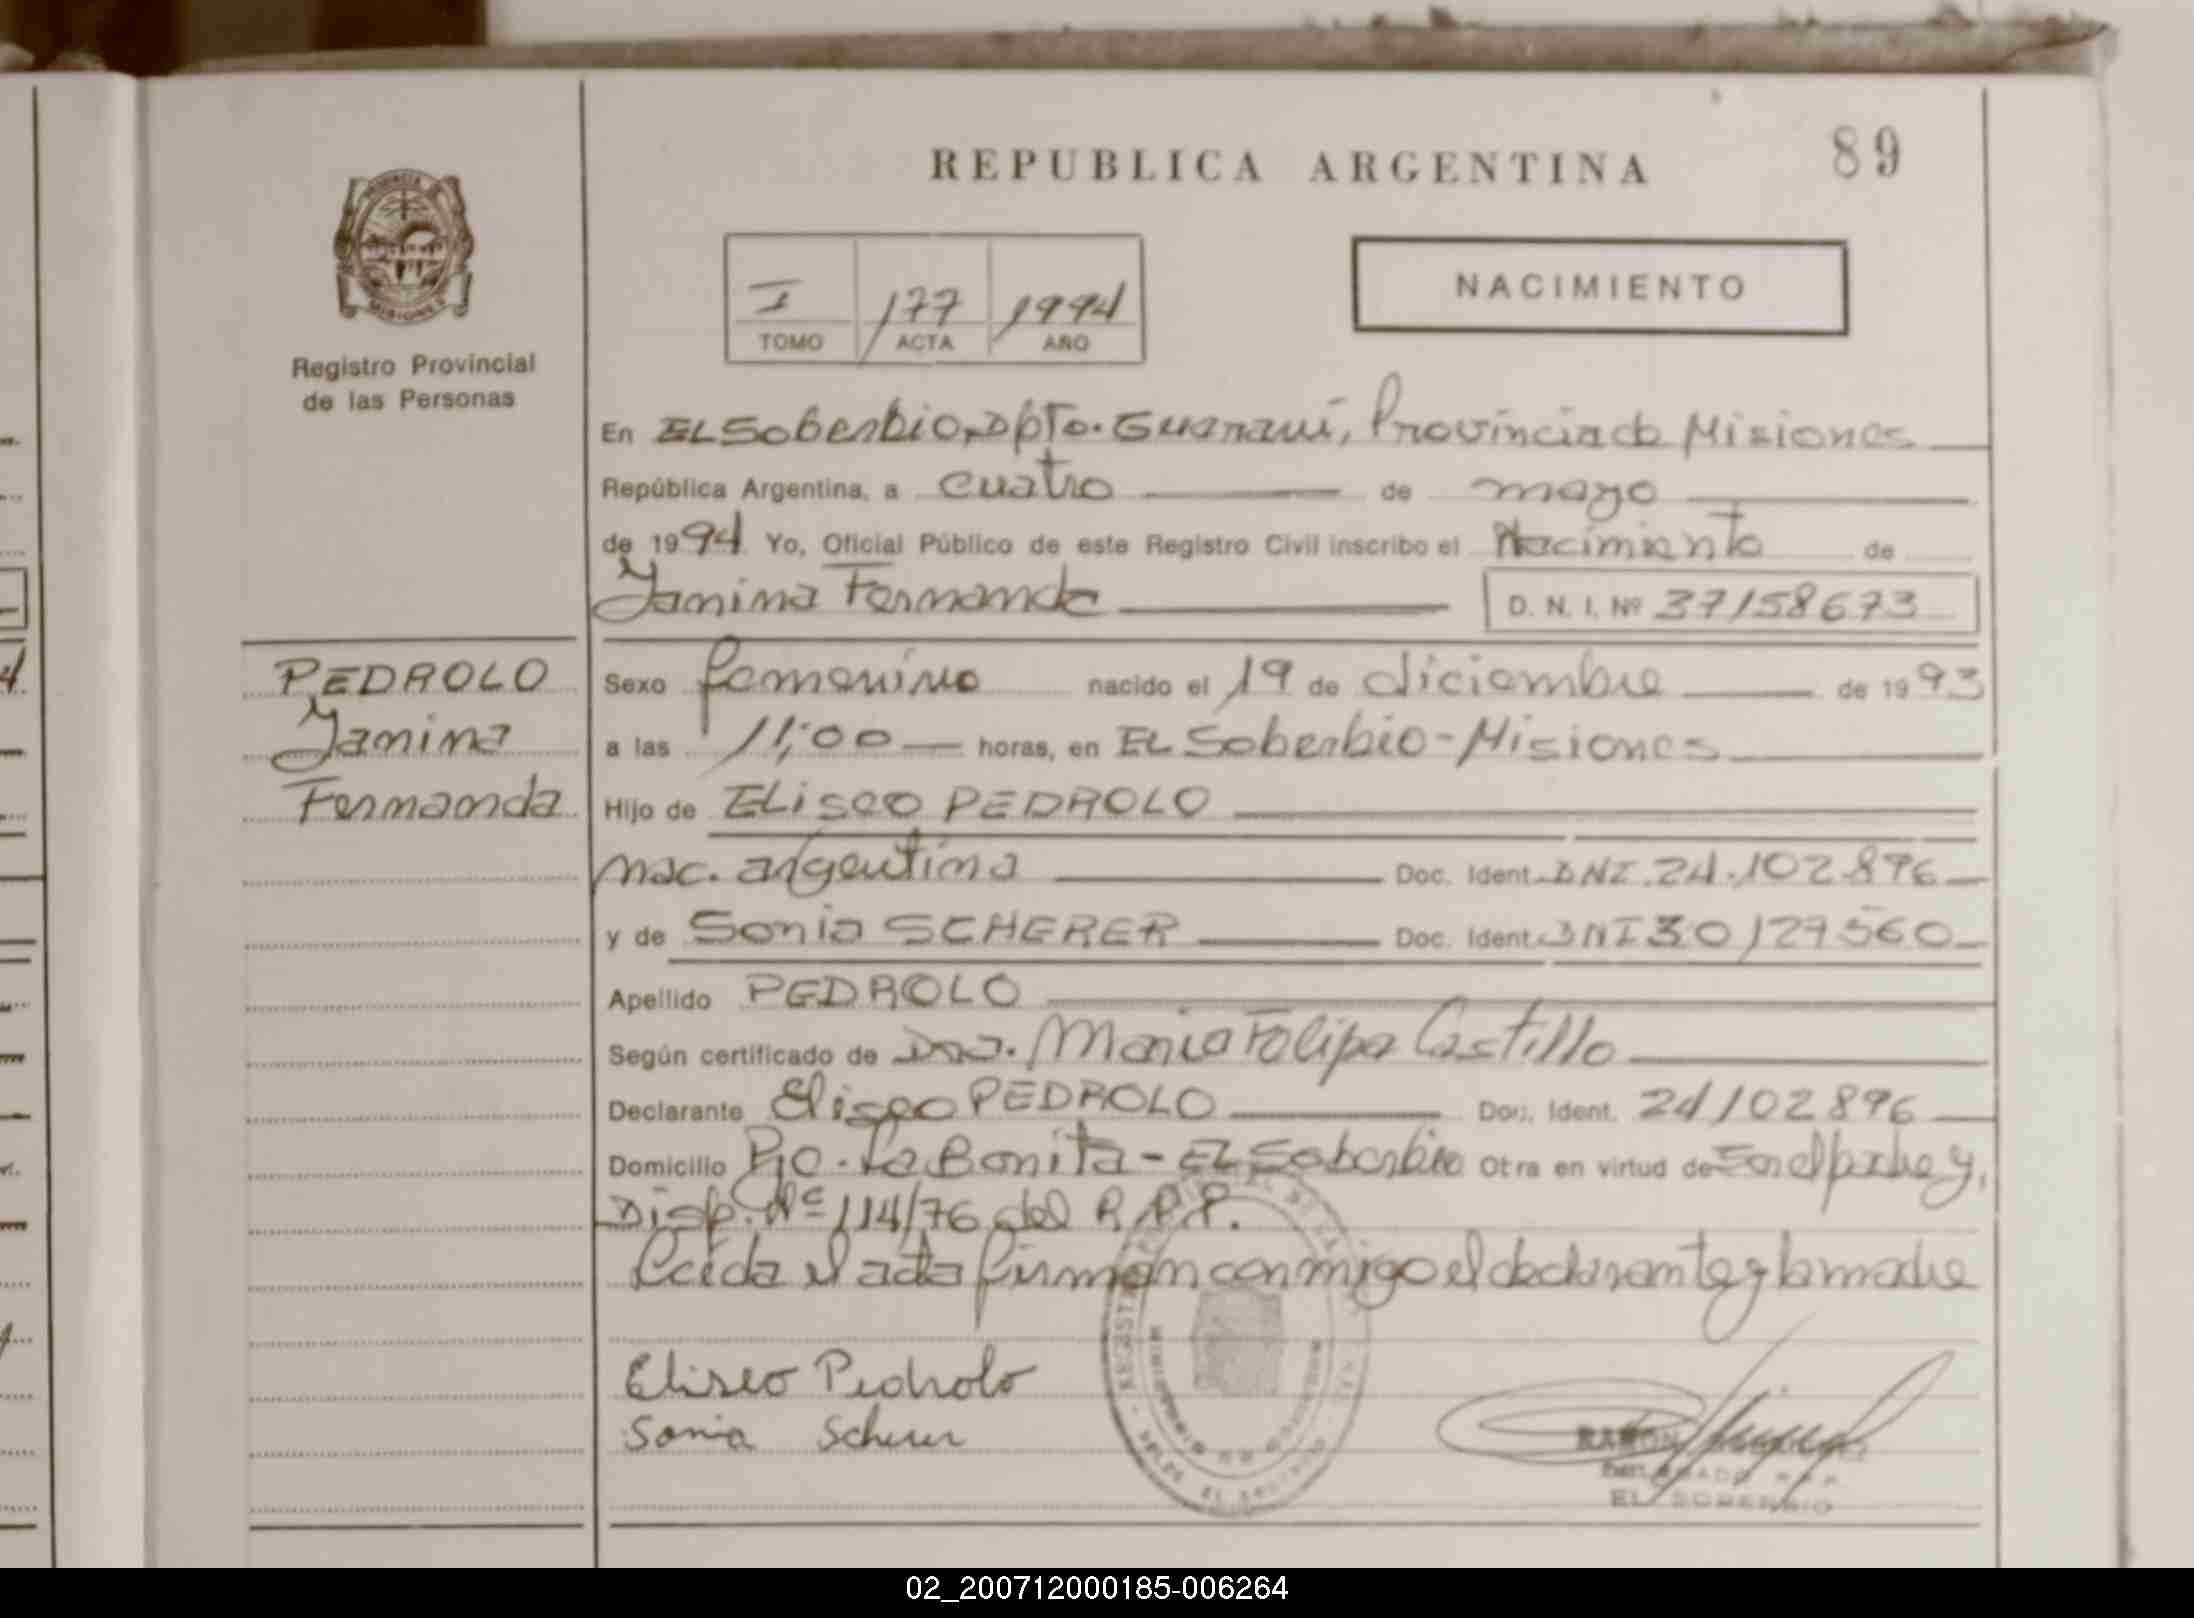 REPUBLICA ARGENTINA
89
I 177 1994
TOMO ACTA AÑO
NACIMIENTO
Registro Provincial
de las Personas
En EL Soberbio, Dpto. Guaraní, Provincia de Misiones
República Argentina, a cuatro de mayo
de 1994 Yo, Oficial Público de este Registro Civil inscribo el Nacimiento de
Yanina Fernanda D. N. I. Nº 37158673
PEDROLO
Yanina
Fernanda
Sexo femenino nacido el 19 de diciembre de 1993
a las 11;00 horas, en EL Soberbio - Misiones
Hijo de ELiseo PEDROLO
nac. argentina Doc. Ident. DNI.24.102.896
y de Sonia SCHERER Doc. Ident. DNI 30127560
Apellido PEDROLO
Según certificado de Dra. Maria Felipa Castillo
Declarante Eliseo PEDROLO Doc. Ident. 24102896
Domicilio Pje. La Bonita - EL Soberbio Otra en virtud de Ser el padre y,
Disp. Nº 114/76 del R.P.P.
Leída el acta firman conmigo el declarante y la madre
Eliseo Pedrolo
Sonia Scherer
RAMON
EL SOBERBIO
02_200712000185-006264